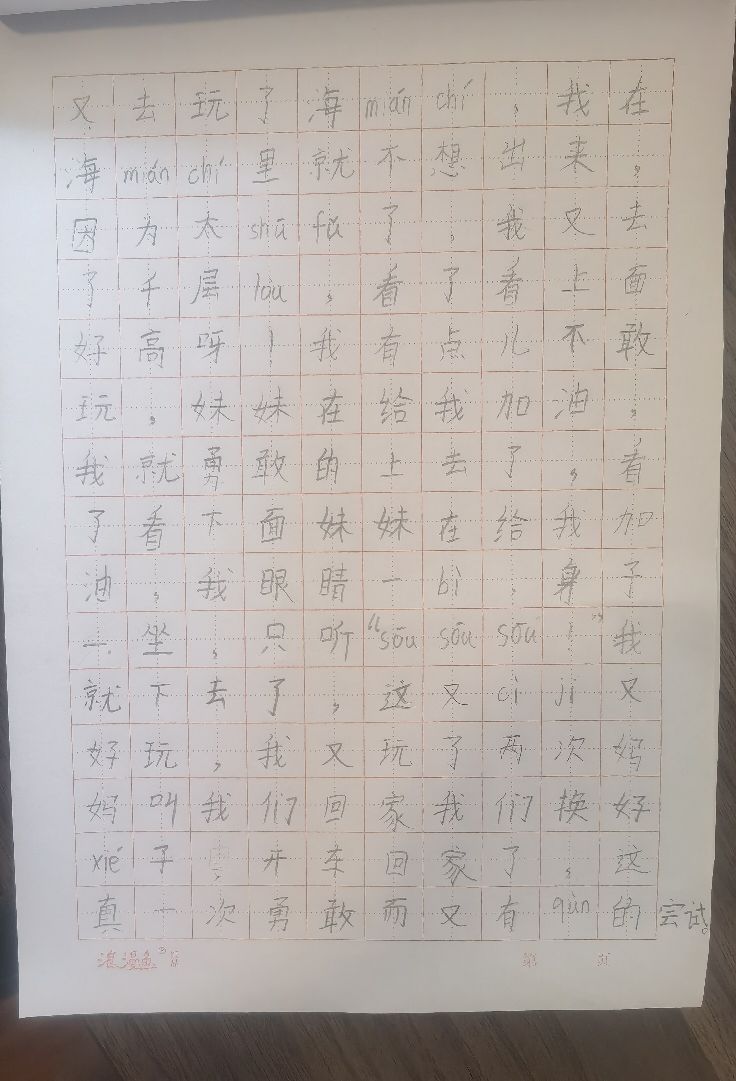 又去玩了海mián chí，我在
海mián chí里就不想出来，
因为太shū fu了，我又去
了千层lóu，看了看上面
好高呀！我有点儿不敢
玩，妹妹在给我加油，
我就勇敢的上去了，看
了看下面妹妹在给我加
油，我眼睛一bì，身子
一坐，只听“sōu sōu sōu！”我
就下去了，这又cì jī又
好玩，我又玩了两次妈
妈叫我们回家我们换好
xié子，开车回家了，这
真一次勇敢而又有qùn的尝试。
浪漫鱼
第 页